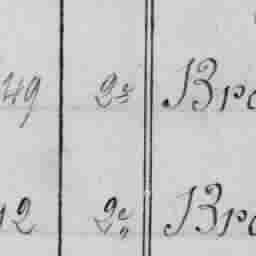 49 2e Bro
12 2e Bro